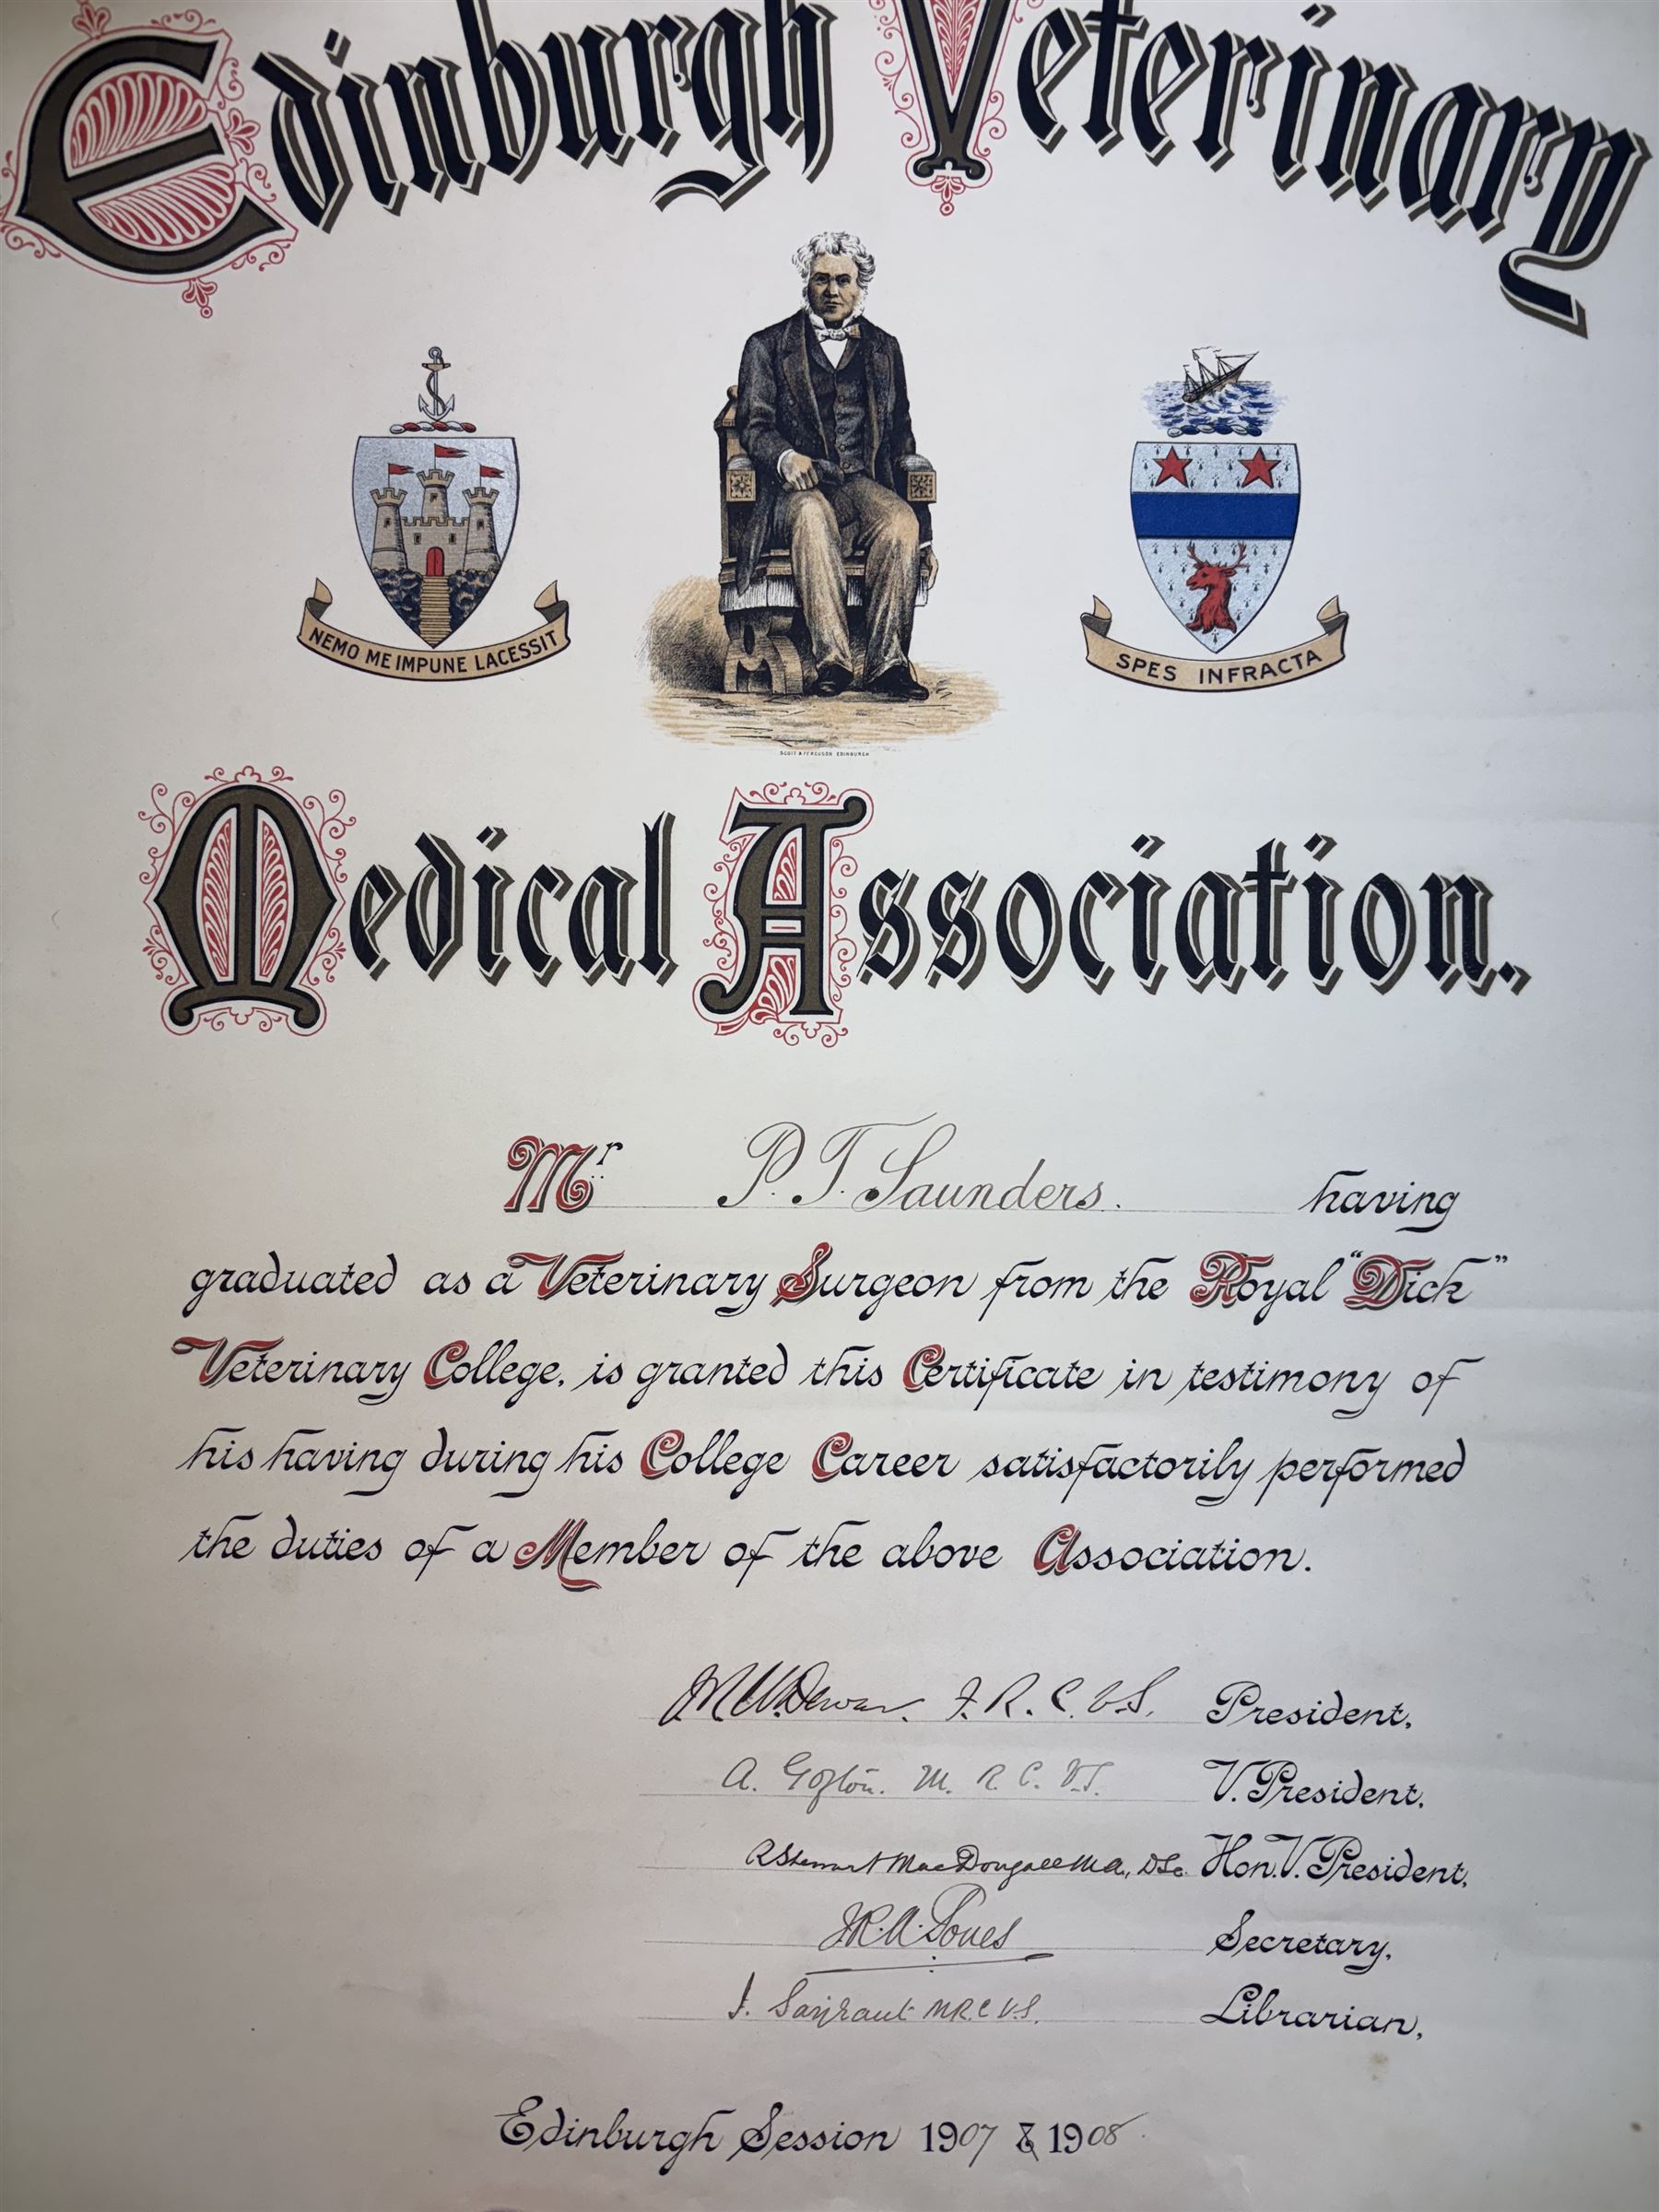 Edinburgh Veterinary
NEMO ME IMPUNE LACESSIT
SPES INFRACTA
SCOTT & FERGUSON EDINBURGH
Medical Association.
Mr P. T. Saunders. having
graduated as a Veterinary Surgeon from the Royal "Dick"
Veterinary College, is granted this Certificate in testimony of
his having during his College Career satisfactorily performed
the duties of a Member of the above Association.
Dewar. F. R. C. V. S. President,
A. Gofton. M. R. C. V. S. V. President,
R Stewart MacDougall M.A., D.Sc. Hon. V. President,
Secretary,
M.R.C.V.S. Librarian,
Edinburgh Session 1907 & 1908